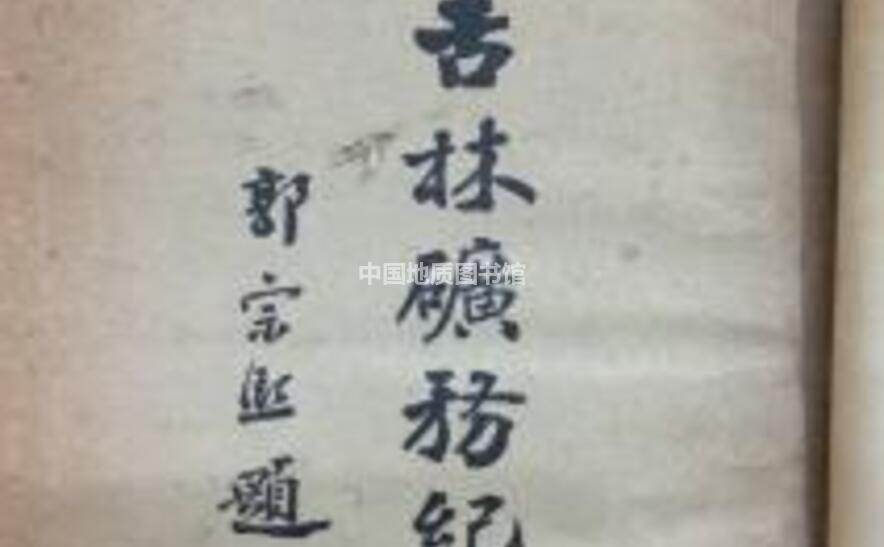 吉林礦務紀
郭宗熙題
中国地质图书馆